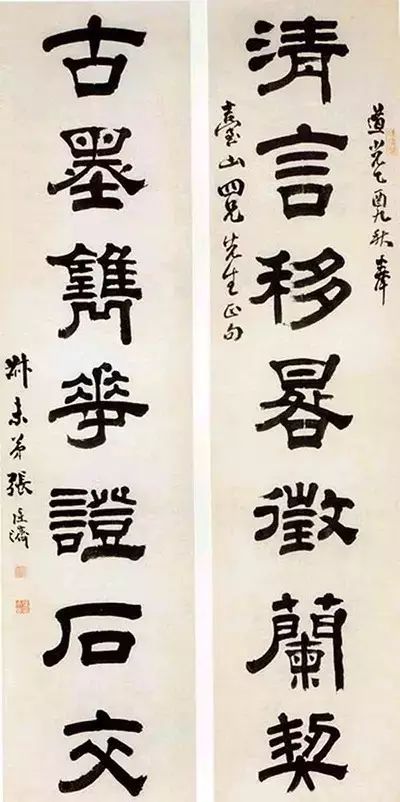 道光乙酉九秋奉
清言移晷徵蘭契
臺山四兄先生正句
古墨鐫華證石交
叔未弟張廷濟